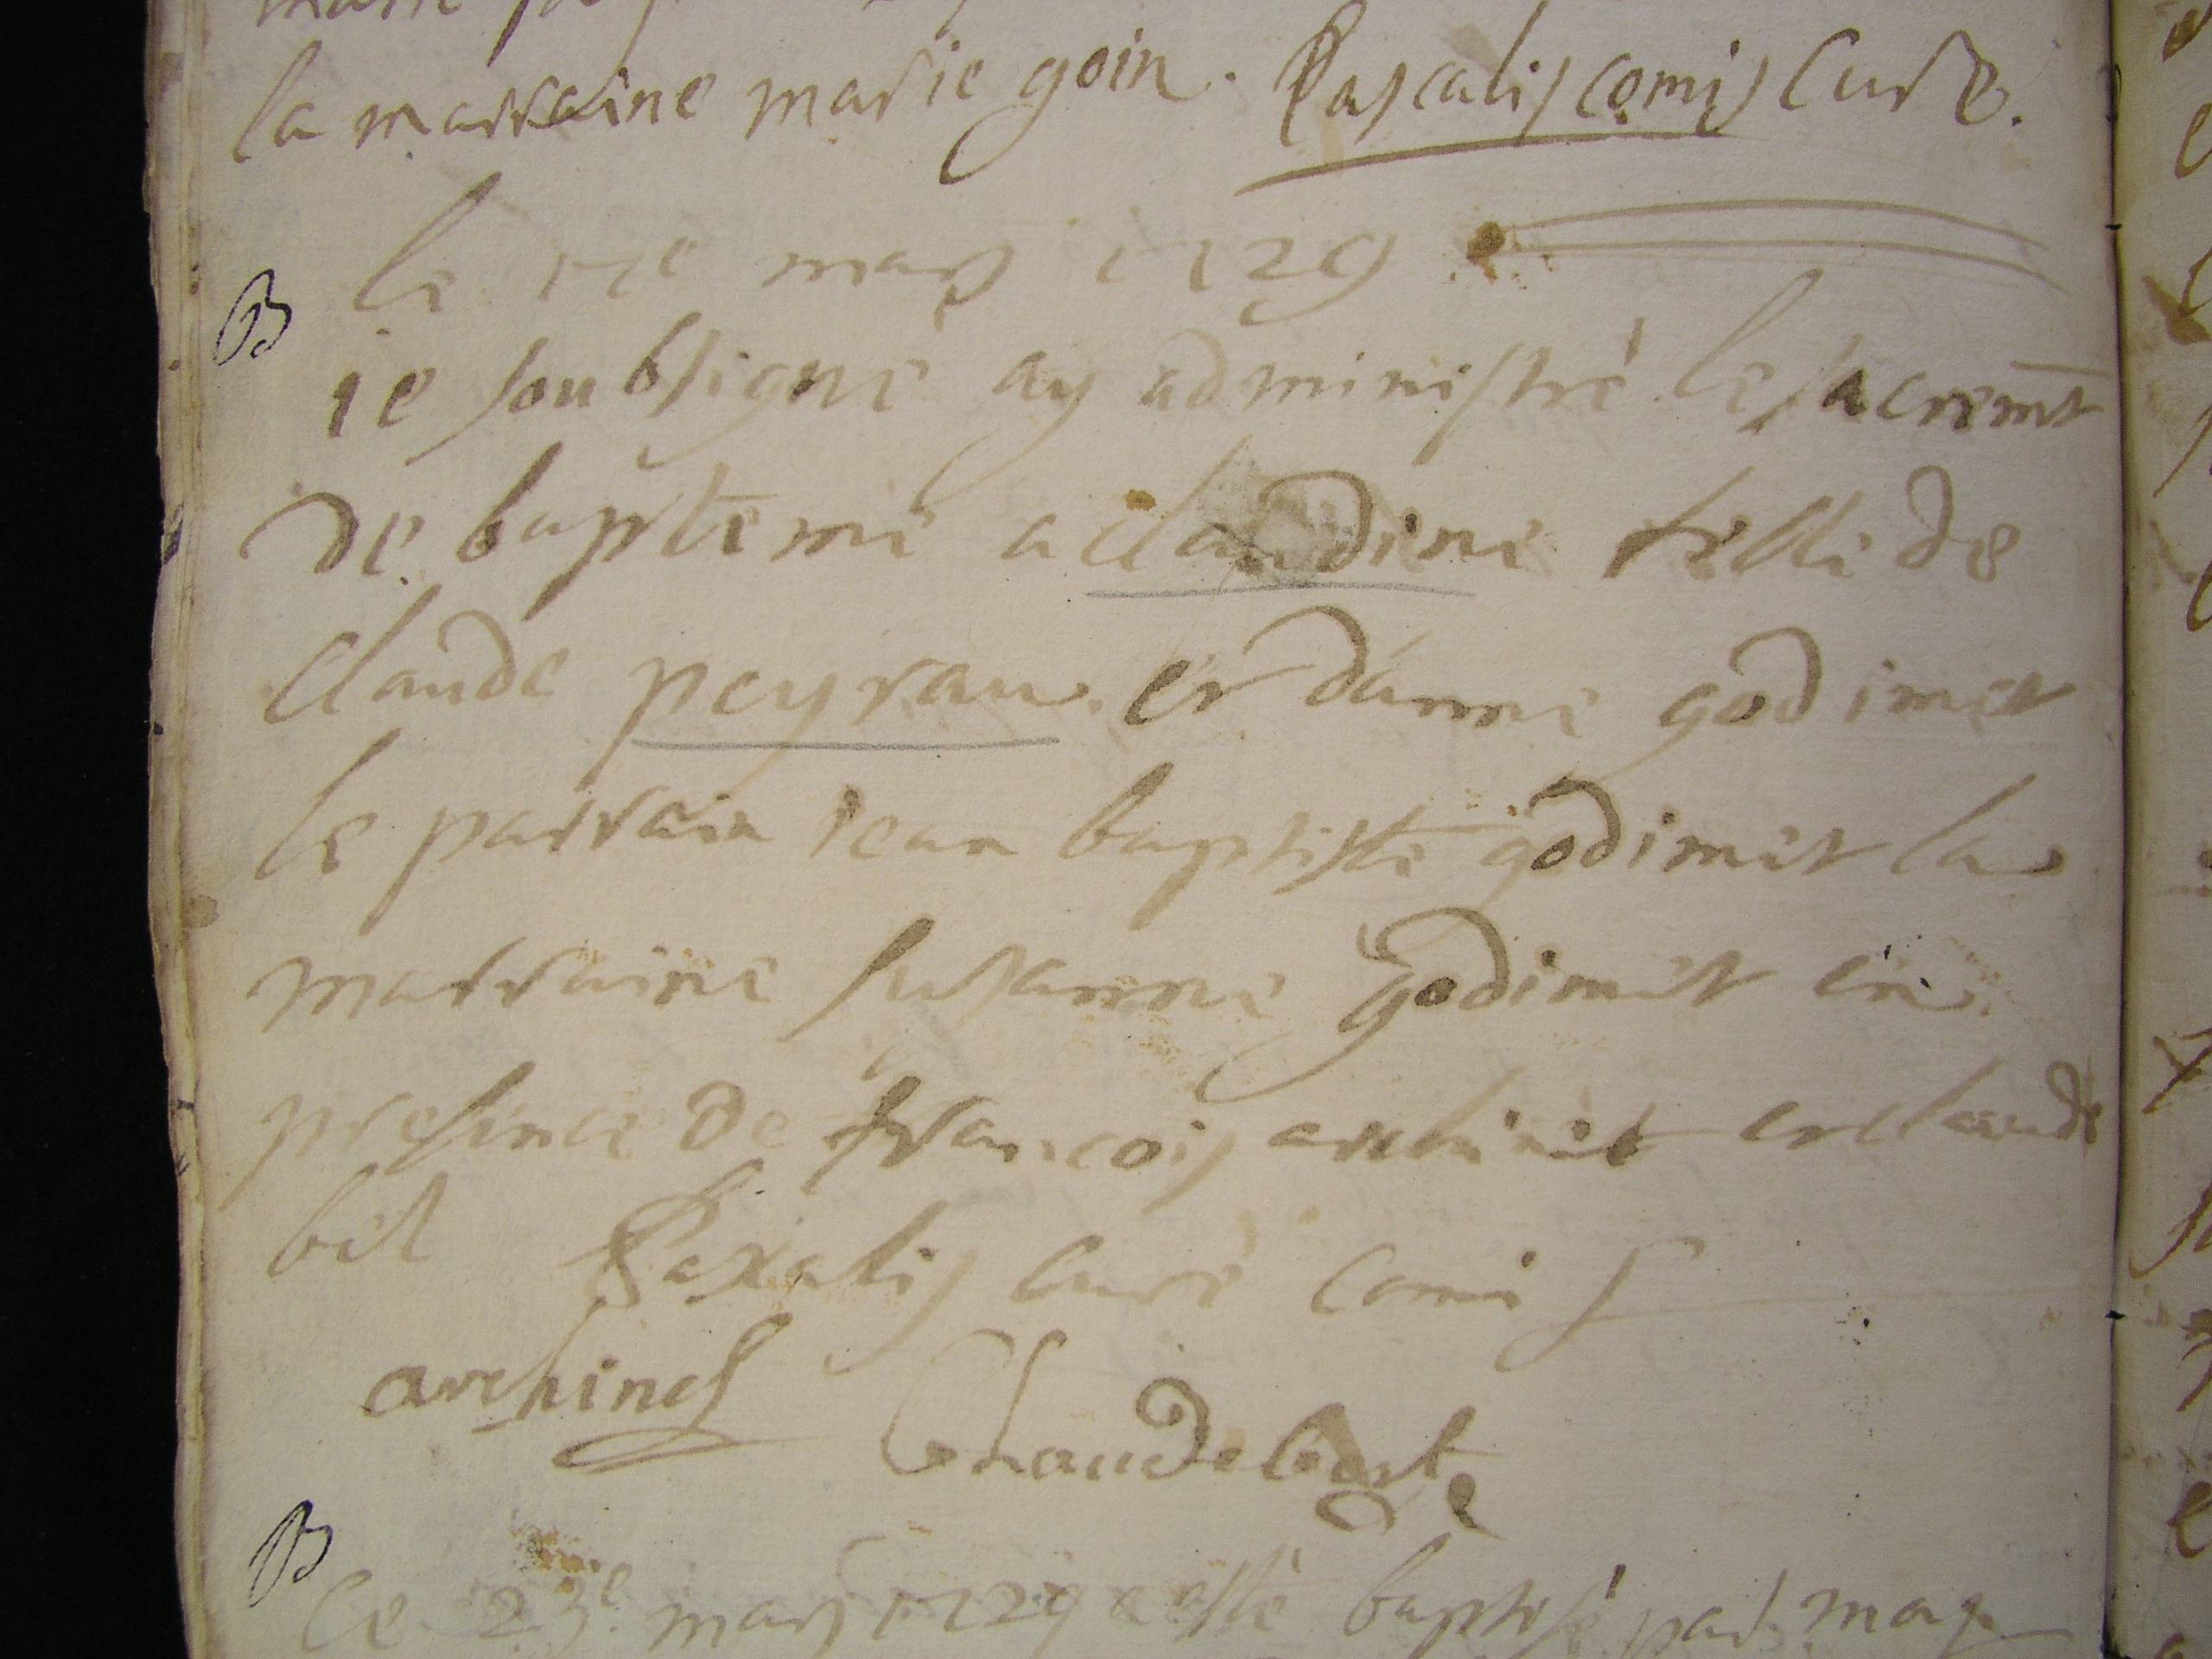 la marraine marie goin. Pascalis comis Curé.
le 17e mars 1729
B
ie soubsigne ay administré le sacremt
de bapteme a claudine fille de
claude peyrau et danne godimet
le parrain iean baptiste godimet la
marraine susanne godimet en
presence de francois archinet et claude
bet Pascalis curé comis
archined Claude
B
le 23e mars 1729 a esté baptisé par